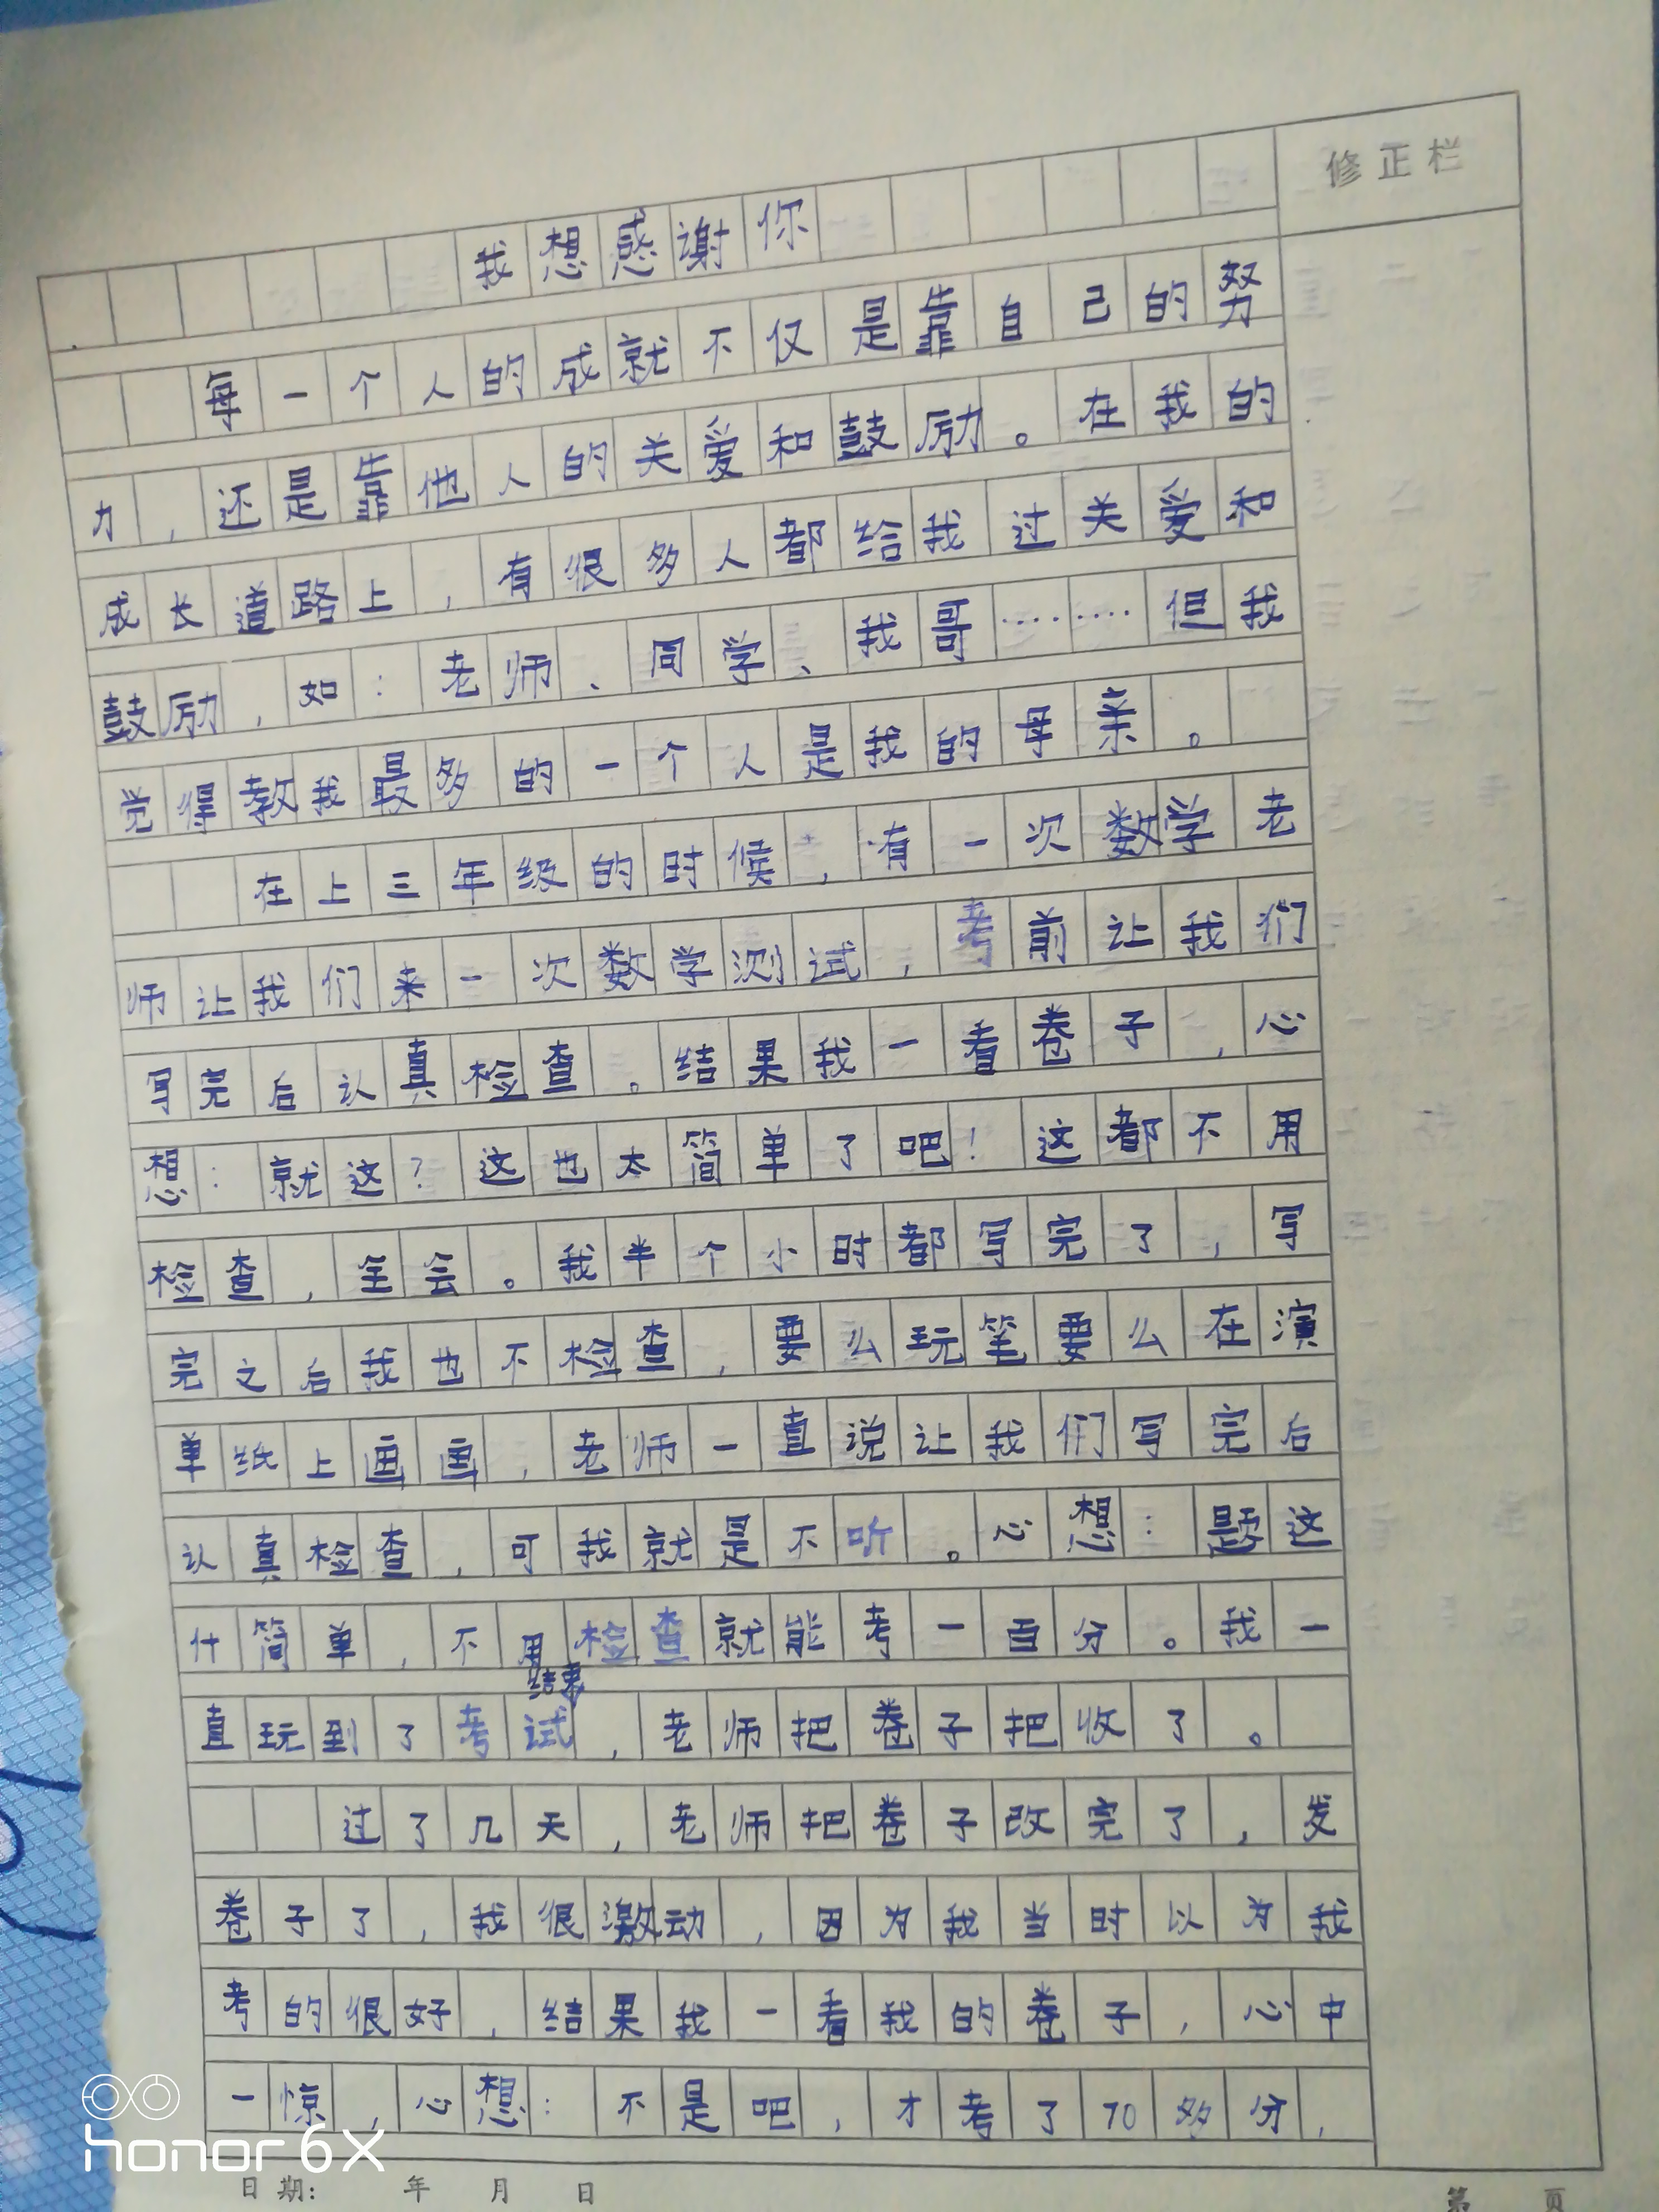 修正栏
我想感谢你
每一个人的成就不仅是靠自己的努
力，还是靠他人的关爱和鼓励。在我的
成长道路上，有很多人都给我过关爱和
鼓励，如：老师、同学、我哥……但我
觉得教我最多的一个人是我的母亲。
在上三年级的时候，有一次数学老
师让我们来一次数学测试，考前让我们
写完后认真检查。结果我一看卷子，心
想：就这？这也太简单了吧！这都不用
检查，全会。我半个小时都写完了，写
完之后我也不检查，要么玩笔要么在演
单纸上画画，老师一直说让我们写完后
认真检查，可我就是不听。心想：题这
什简单，不用检查就能考一百分。我一
直玩到了考试结束，老师把卷子把收了。
过了几天，老师把卷子改完了，发
卷子了，我很激动，因为我当时以为我
考的很好，结果我一看我的卷子，心中
一惊，心想：不是吧，才考了70多分，
honor 6X
日期： 年 月 日 第 页